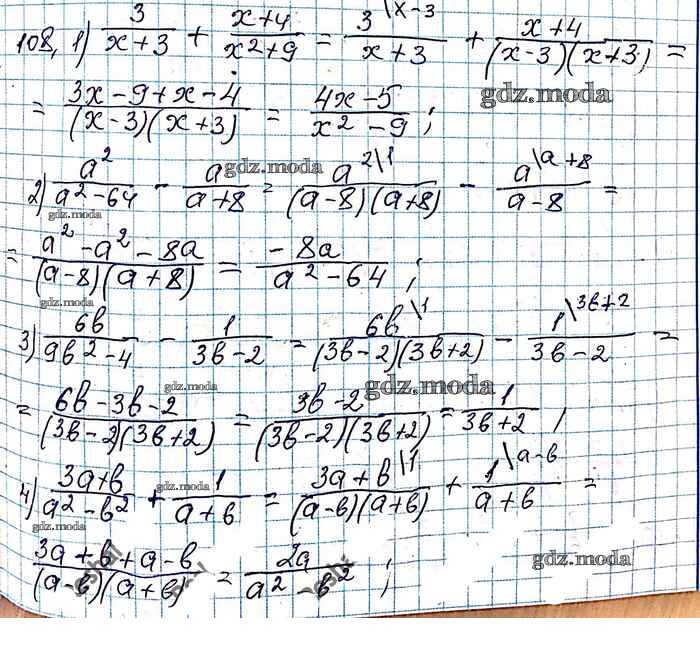 108, 1) 3/(x+3) + (x+4)/(x²+9) = 3\x-3/(x+3) + (x+4)/((x-3)(x+3)) =
gdz.moda
= (3x-9+x-4)/((x-3)(x+3)) = (4x-5)/(x²-9);
gdz.moda
2) a²/(a²-64) - a/(a+8) = a²\1/((a-8)(a+8)) - a\a+8/(a-8) =
gdz.moda
= (a²-a²-8a)/((a-8)(a+8)) = -8a/(a²-64);
gdz.moda
3) 6b/(9b²-4) - 1/(3b-2) = 6b\1/((3b-2)(3b+2)) - 1\3b+2/(3b-2) =
gdz.moda gdz.moda
= (6b-3b-2)/((3b-2)(3b+2)) = (3b-2)/((3b-2)(3b+2)) = 1/(3b+2),
gdz.moda
4) (3a+b)/(a²-b²) + 1/(a+b) = 3a+b\1/((a-b)(a+b)) + 1\a-b/(a+b) =
gdz.moda
(3a+b+a-b)/((a-b)(a+b)) = 2a/(a²-b²);
gdz.moda